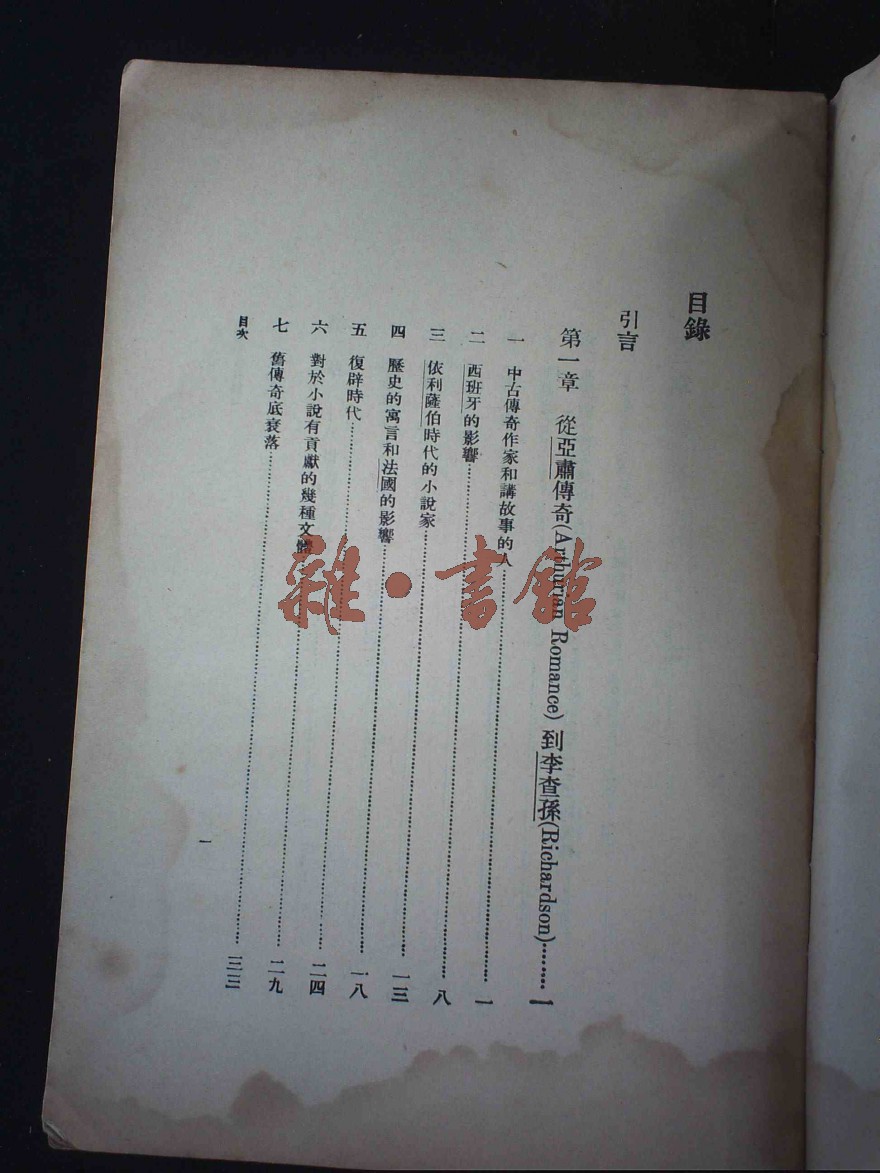 目錄
引言
第一章 從亞肅傳奇(Arthurian Romance)到李查孫(Richardson)………一
一 中古傳奇作家和講故事的人……一
二 西班牙的影響……八
三 依利薩伯時代的小說家……一三
四 歷史的寓言和法國的影響……一八
五 復辟時代……二四
六 對於小說有貢獻的幾種文體……二九
七 舊傳奇底衰落……三三
目次
一
雜·書館